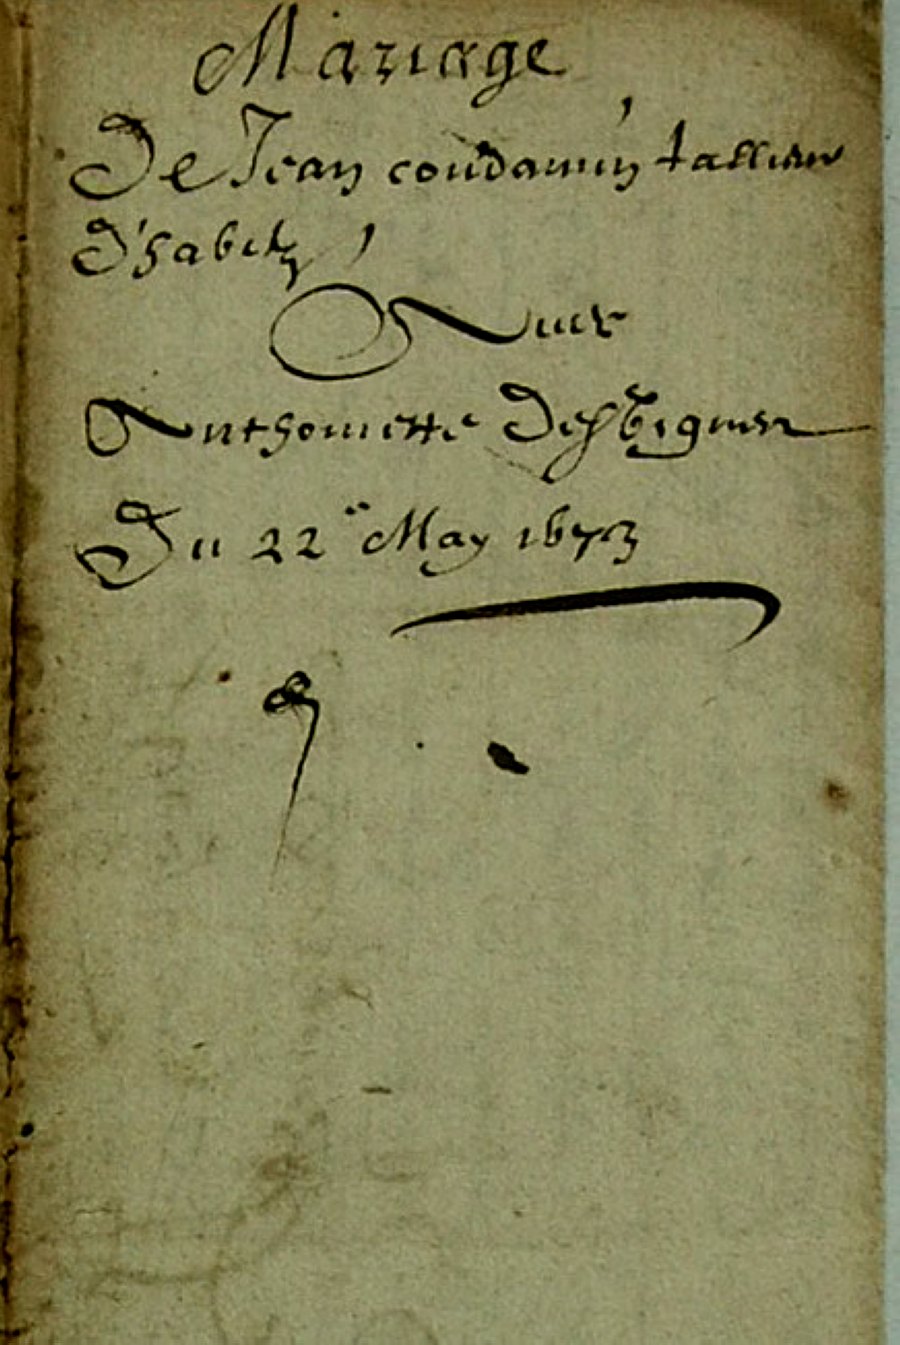 Mariage
De Jean condamin tallieur
D'habitz
Avec
Anthoinette Desvignes
Du 22e May 1673